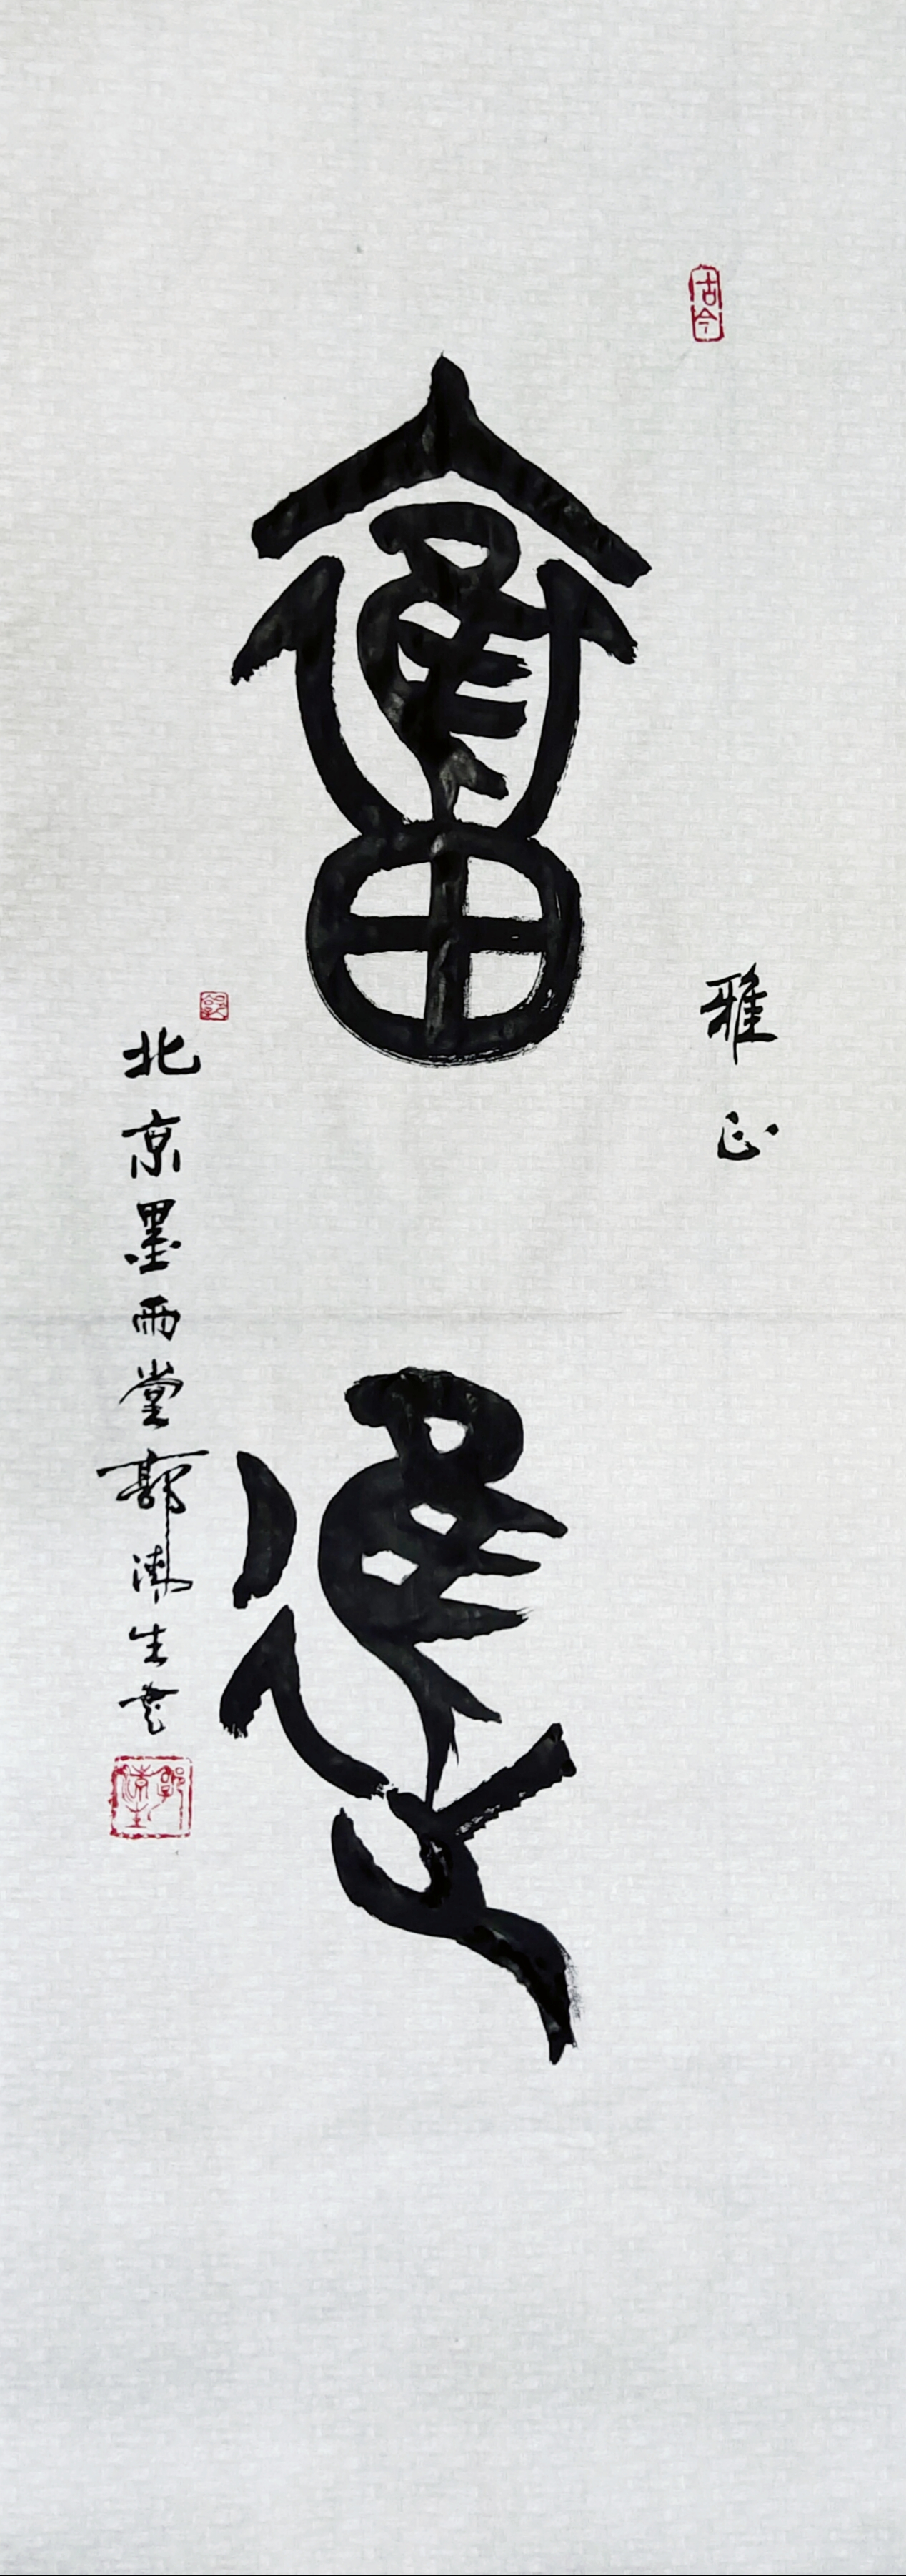 古今
奮進
雅正
北京墨雨堂郭漱生書
郭